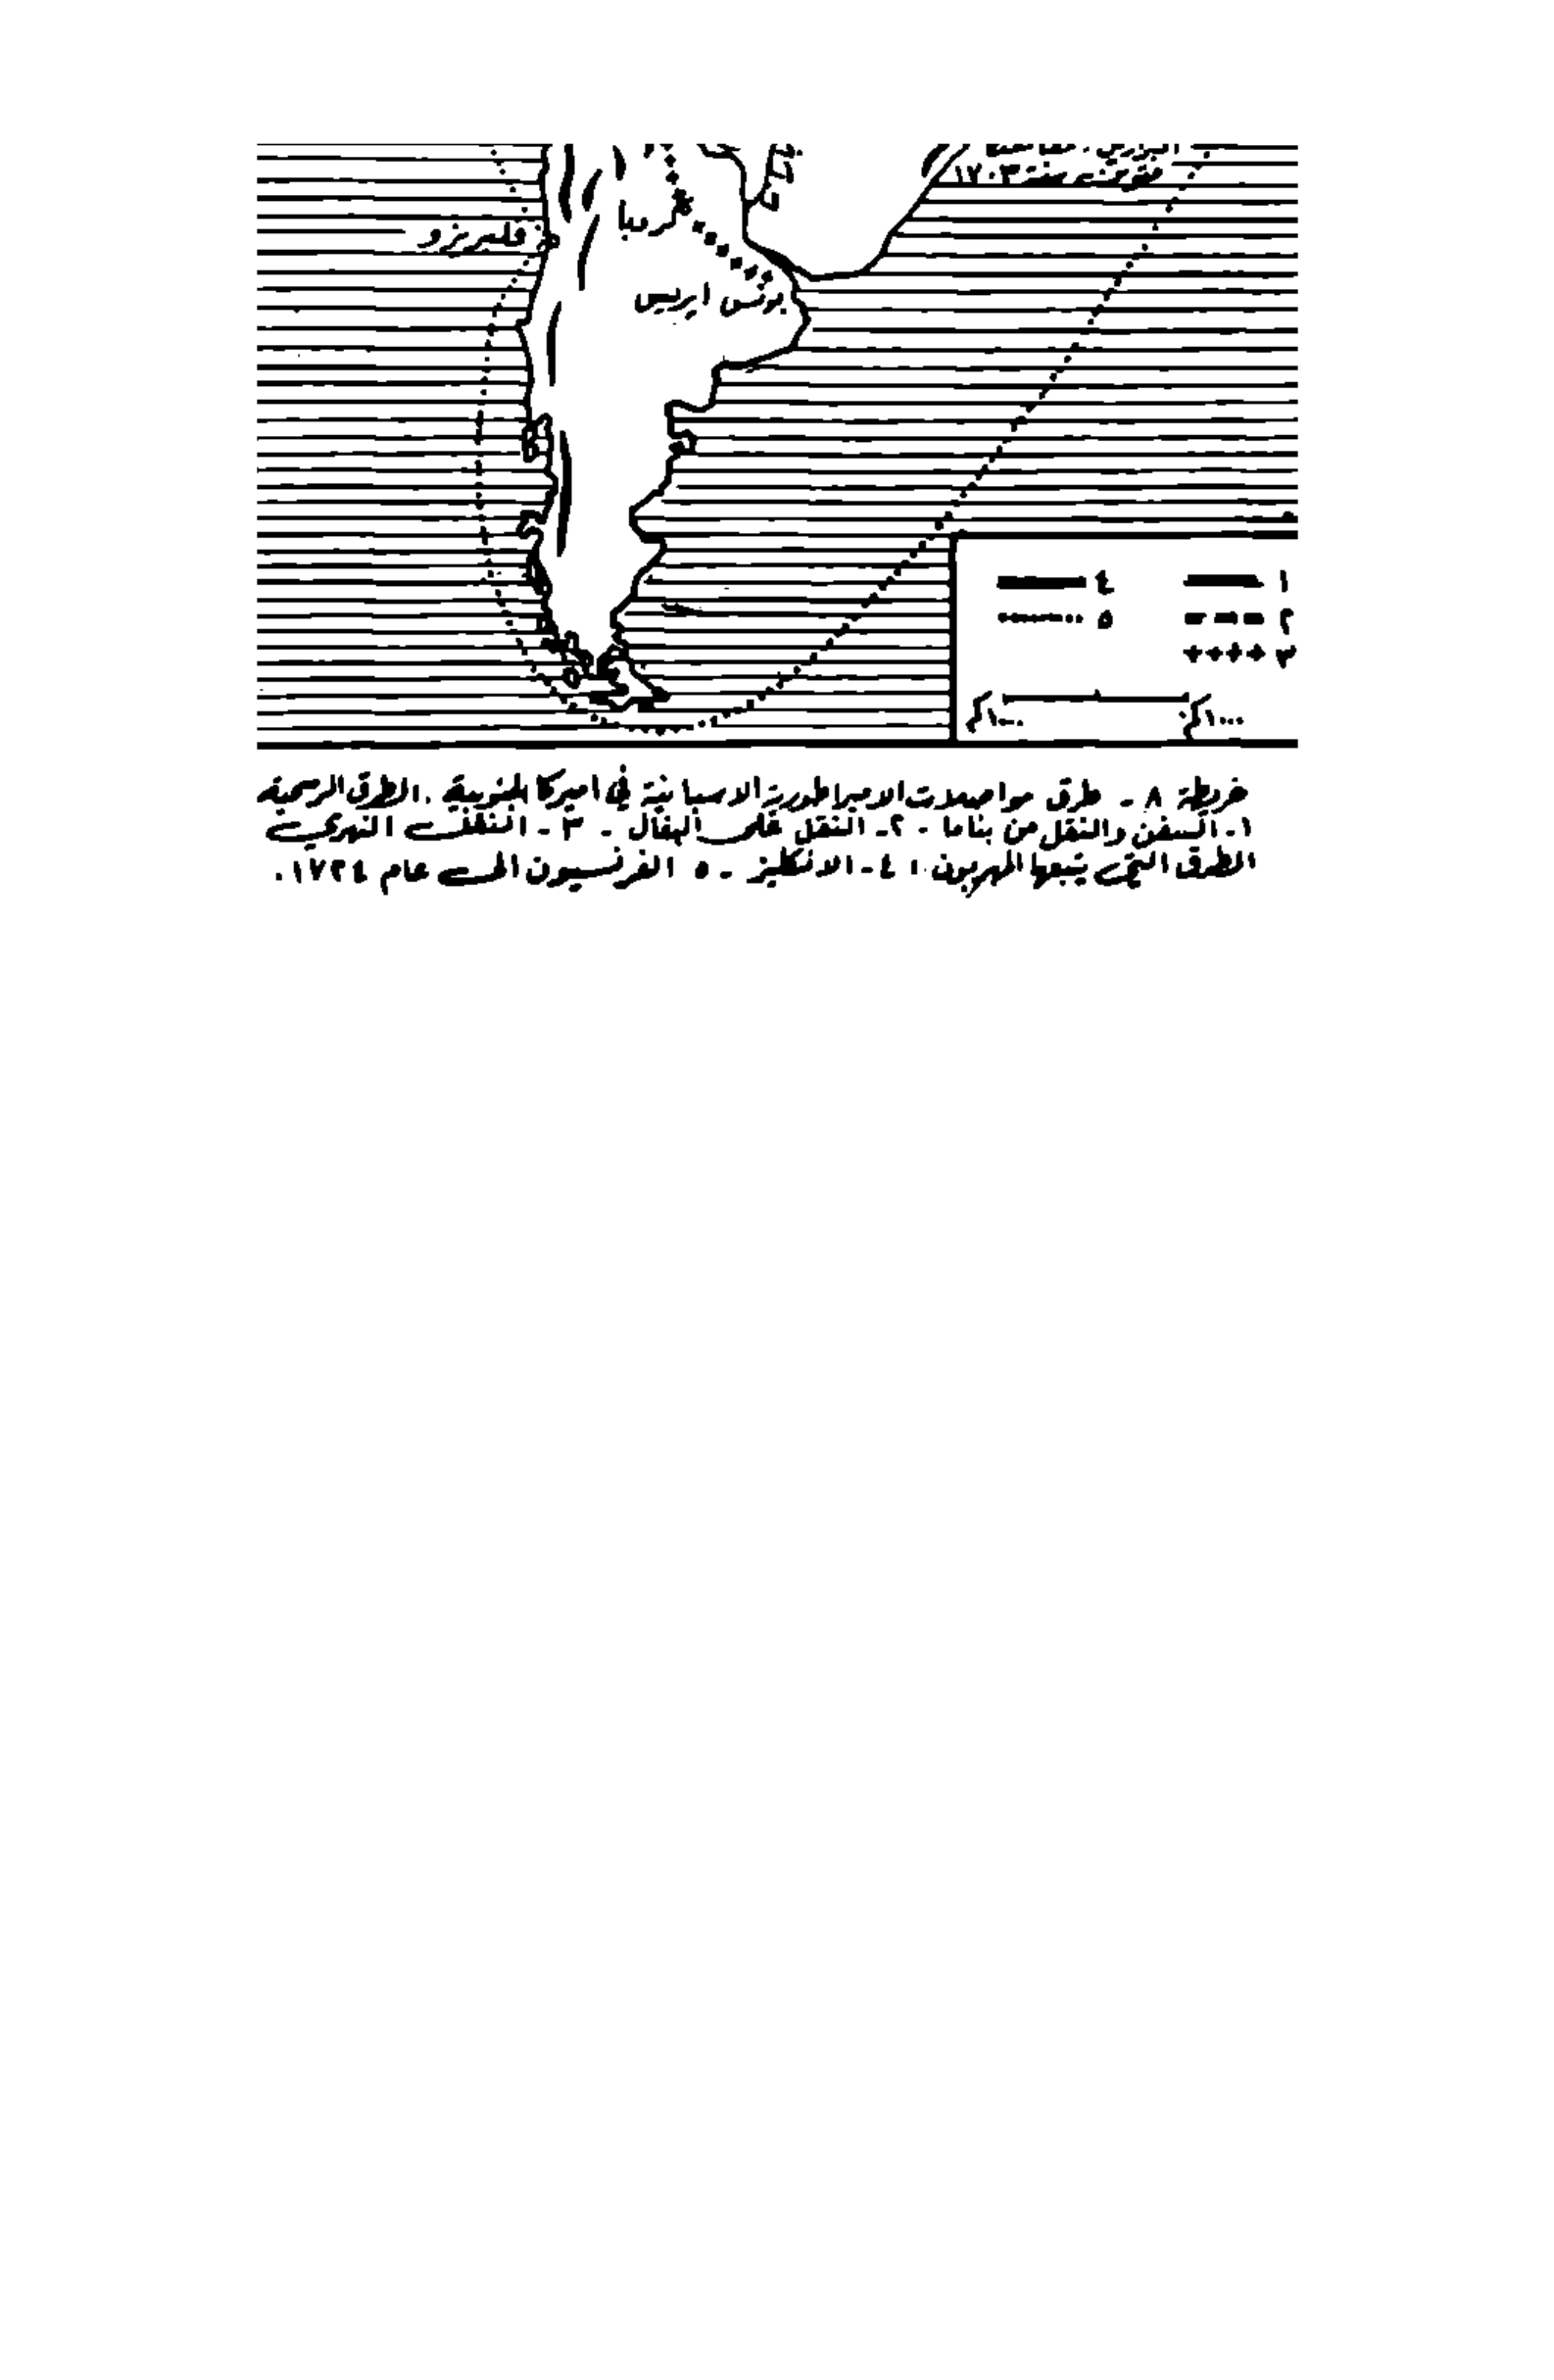 ١٧٠٣
بوينس ايرس
١
٤
٢
٥
٣
١٠٠٠ كم
خريطة ٨ - طرق مواصلات الامبراطورية الاسبانية في اميركا الجنوبية . الطرق الرسمية
١ - السفن والنقل من بناما - ٢ - النقل على البغال - ٣ - النقل النهري
الطرق التي يتبعها المهربون ٤ - الانكليز - ٥ الفرنسيون الى عام ١٧٢٤ .